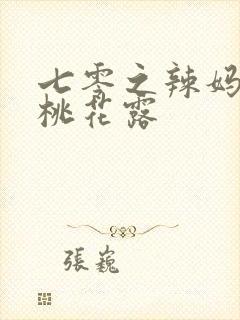 七零之辣妈
桃花露
張巍